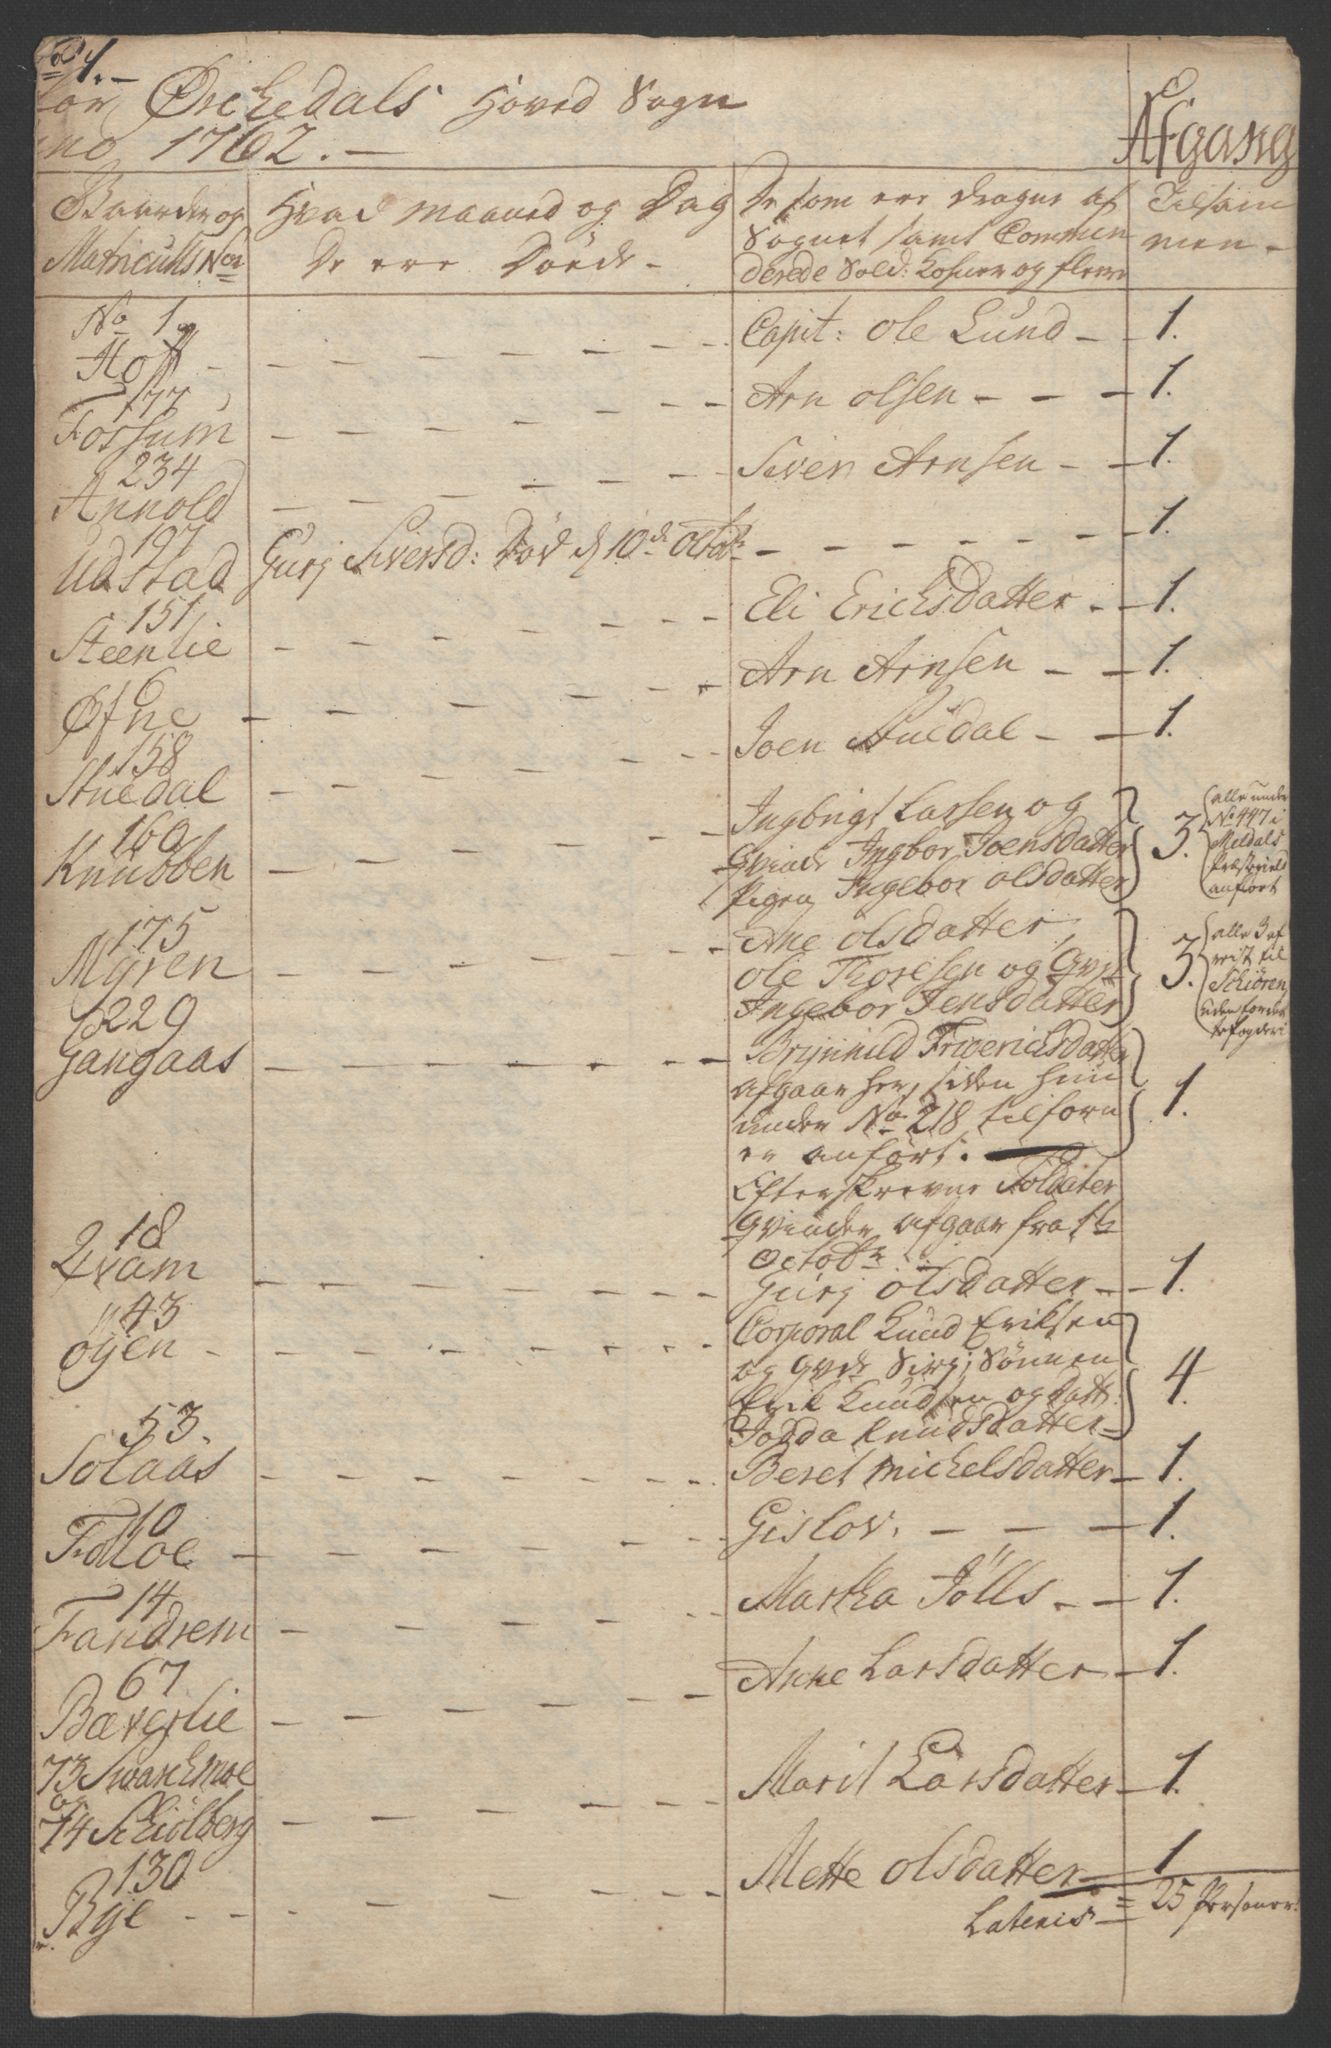 1.-
for Örchedals Hoved Sogn
Anno 1762.-
Afgang
Gaarder og Matriculs Nor
Hvad maaned og Dag De ere Döede -
De som ere dragne af Sognet samt Commenderede Sold: Koner og flere
Tilsammen -
No 1 Hoff - Capit: Ole Lund - 1.
177 Fossum - Arn Olsen - 1.
234 Annold - Siver Arnsen - 1.
197 Udstad Gurj Siversd: Död d 10de Octobr - 1.
151 Steenlie - Eli Erichsdatter - 1.
6 Öfne - Arn Arnsen - 1.
158 Stuedal - Joen Stuedal - 1.
160 Knubben - Ingbrigt Larsen og
Qvinde Ingbor Joensdatter 3.
Pigen Ingebor Olsdatter
alle under
No 447 i
Meldals
Præstegield
anfört
175 Myren - Ane Olsdatter,
Ole Thoresen og Qvi: 3.
Ingebor Jensdatter
alle 3 af
reist til
Schiören
uden for dette
Fogderi
229 Gangaas - Brynnild Friderichsdatter
afgaar her, siden hun 1.
under No 218 tilforn
er anfört.
Efterskrevne Soldater
Qvinder afgaar fra 1te
Octobr
18 Qvam - Gurj Olsdatter - 1.
43 Öyen - Corporal Knud Eriksen
og Qvde Sirj, Sönnen 4.
Erik Knudsen og Datt:
Jodda Knudsdatter -
53. Solaas - Beret Michelsdatter - 1.
10 Folloe - Gislov. - 1.
14 Fandrem - Martha Jölls - 1.
67 Bæverlie - Anne Larsdatter - 1.
73 Svartmoe og
74 Schiölberg - Marit Larsdatter - 1.
130 Bye - Mette Olsdatter - 1
Lateris = 25 Personer.